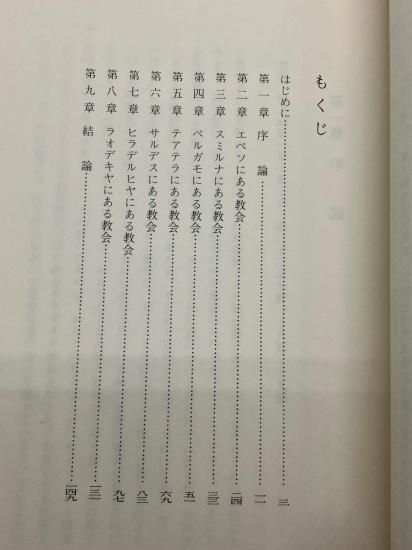 もくじ
はじめに……三
第一章 序論……一一
第二章 エペソにある教会……二四
第三章 スミルナにある教会……三三
第四章 ペルガモにある教会……五一
第五章 テアテラにある教会……六九
第六章 サルデスにある教会……八三
第七章 ヒラデルヒヤにある教会……九七
第八章 ラオデキヤにある教会……一三一
第九章 結論……一四九